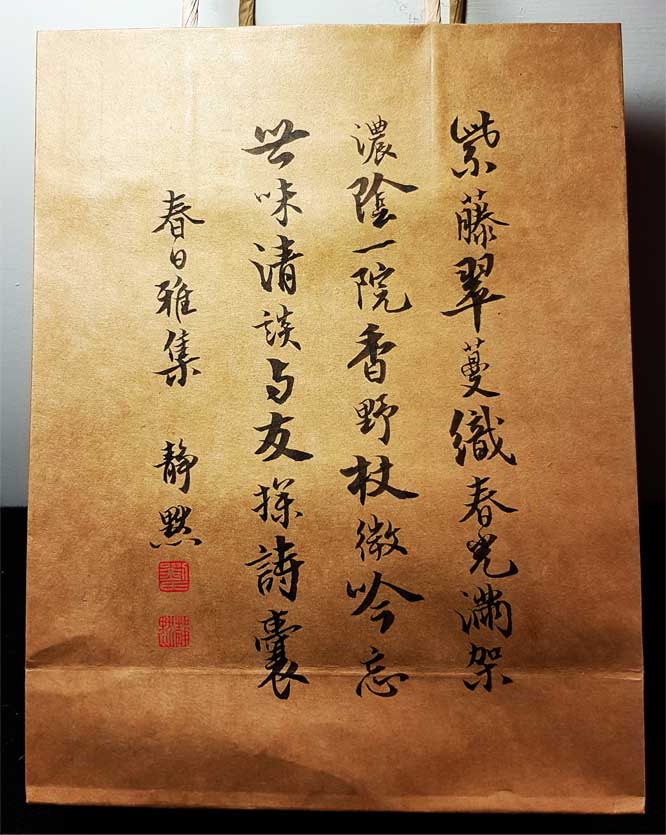 紫藤翠蔓織春光滿架
濃陰一院香野杖微吟忘
世味清談与友探詩囊
春日雅集 静默